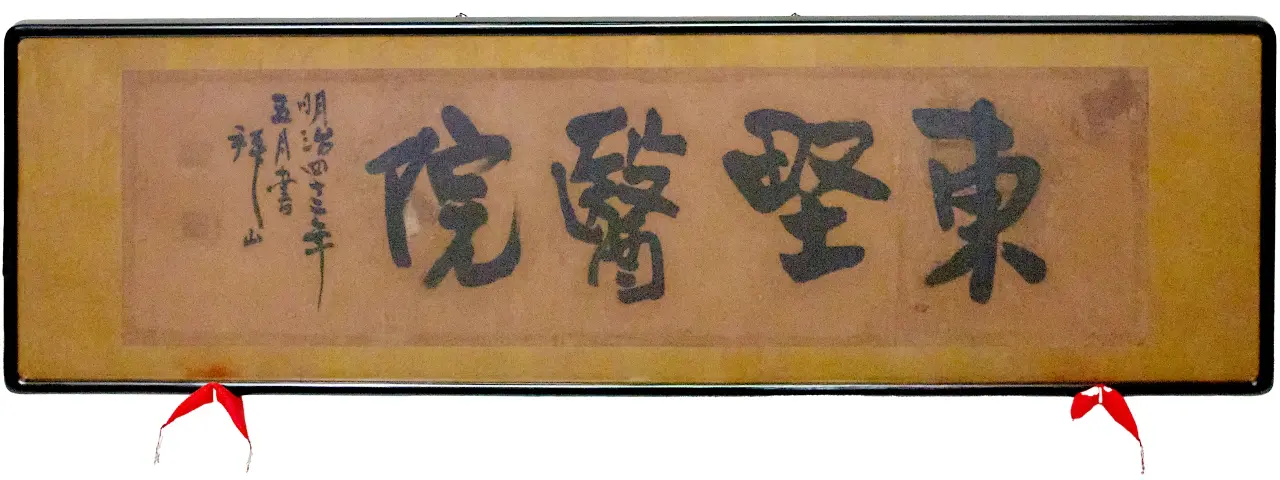 東堅醫院
明治四十五年
五月書
拝山